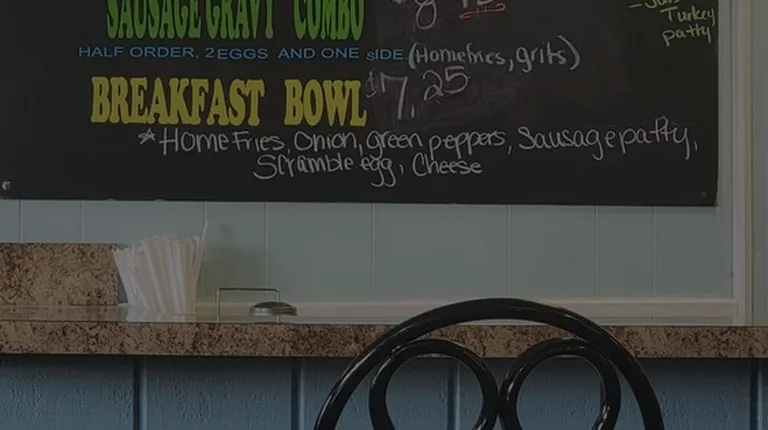 SAUSAGE GRAVY COMBO
HALF ORDER, 2EGGS AND ONE SIDE (Homefries, grits)
BREAKFAST BOWL 7.25
*Home Fries, Onion, green peppers, Sausage patty,
Scramble egg, Cheese
Turkey
patty